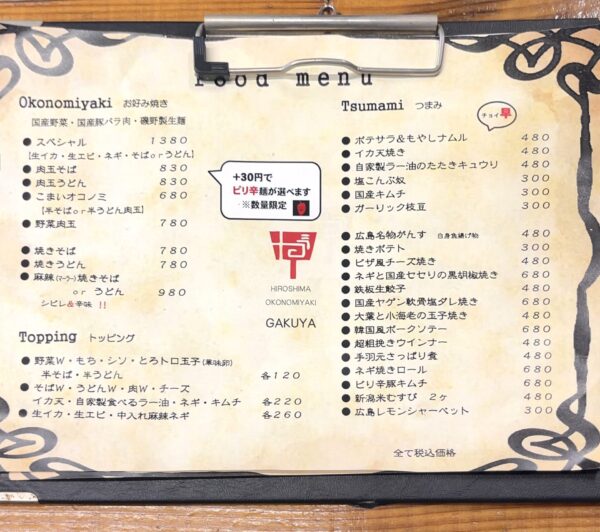 Food menu
Okonomiyaki お好み焼き
国産野菜・国産豚バラ肉・磯野製生麺
● スペシャル 1380
[生イカ・生エビ・ネギ・そばorうどん]
● 肉玉そば 830
● 肉玉うどん 830
● こまいオコノミ 680
[半そばor半うどん肉玉]
● 野菜肉玉 780
● 焼きそば 780
● 焼きうどん 780
● 麻辣(マーラー)焼きそば
or うどん 980
シビレ&辛味 !!
+30円で
ピリ辛麺が選べます
※数量限定
HIROSHIMA
OKONOMIYAKI
GAKUYA
Topping トッピング
● 野菜W・もち・シソ・とろトロ玉子(半熟卵)
半そば・半うどん 各120
● そばW・うどんW・肉W・チーズ
イカ天・自家製食べるラー油・ネギ・キムチ 各220
● 生イカ・生エビ・中入れ麻辣ネギ 各260
Tsumami つまみ
チョイ早
● ポテサラ&もやしナムル 480
● イカ天焼き 480
● 自家製ラー油のたたきキュウリ 480
● 塩こんぶ奴 300
● 国産キムチ 300
● ガーリック枝豆 300
● 広島名物がんす 白身魚揚げ物 480
● 焼きポテト 300
● ピザ風チーズ焼き 480
● ネギと国産セセリの黒胡椒焼き 680
● 鉄板生餃子 480
● 国産ヤゲン軟骨塩ダレ焼き 680
● 大葉と小海老の玉子焼き 480
● 韓国風ポークソテー 680
● 超粗挽きウインナー 480
● 手羽元さっぱり煮 480
● ネギ焼きロール 680
● ピリ辛豚キムチ 680
● 新潟米むすび 2ヶ 480
● 広島レモンシャーベット 300
全て税込価格